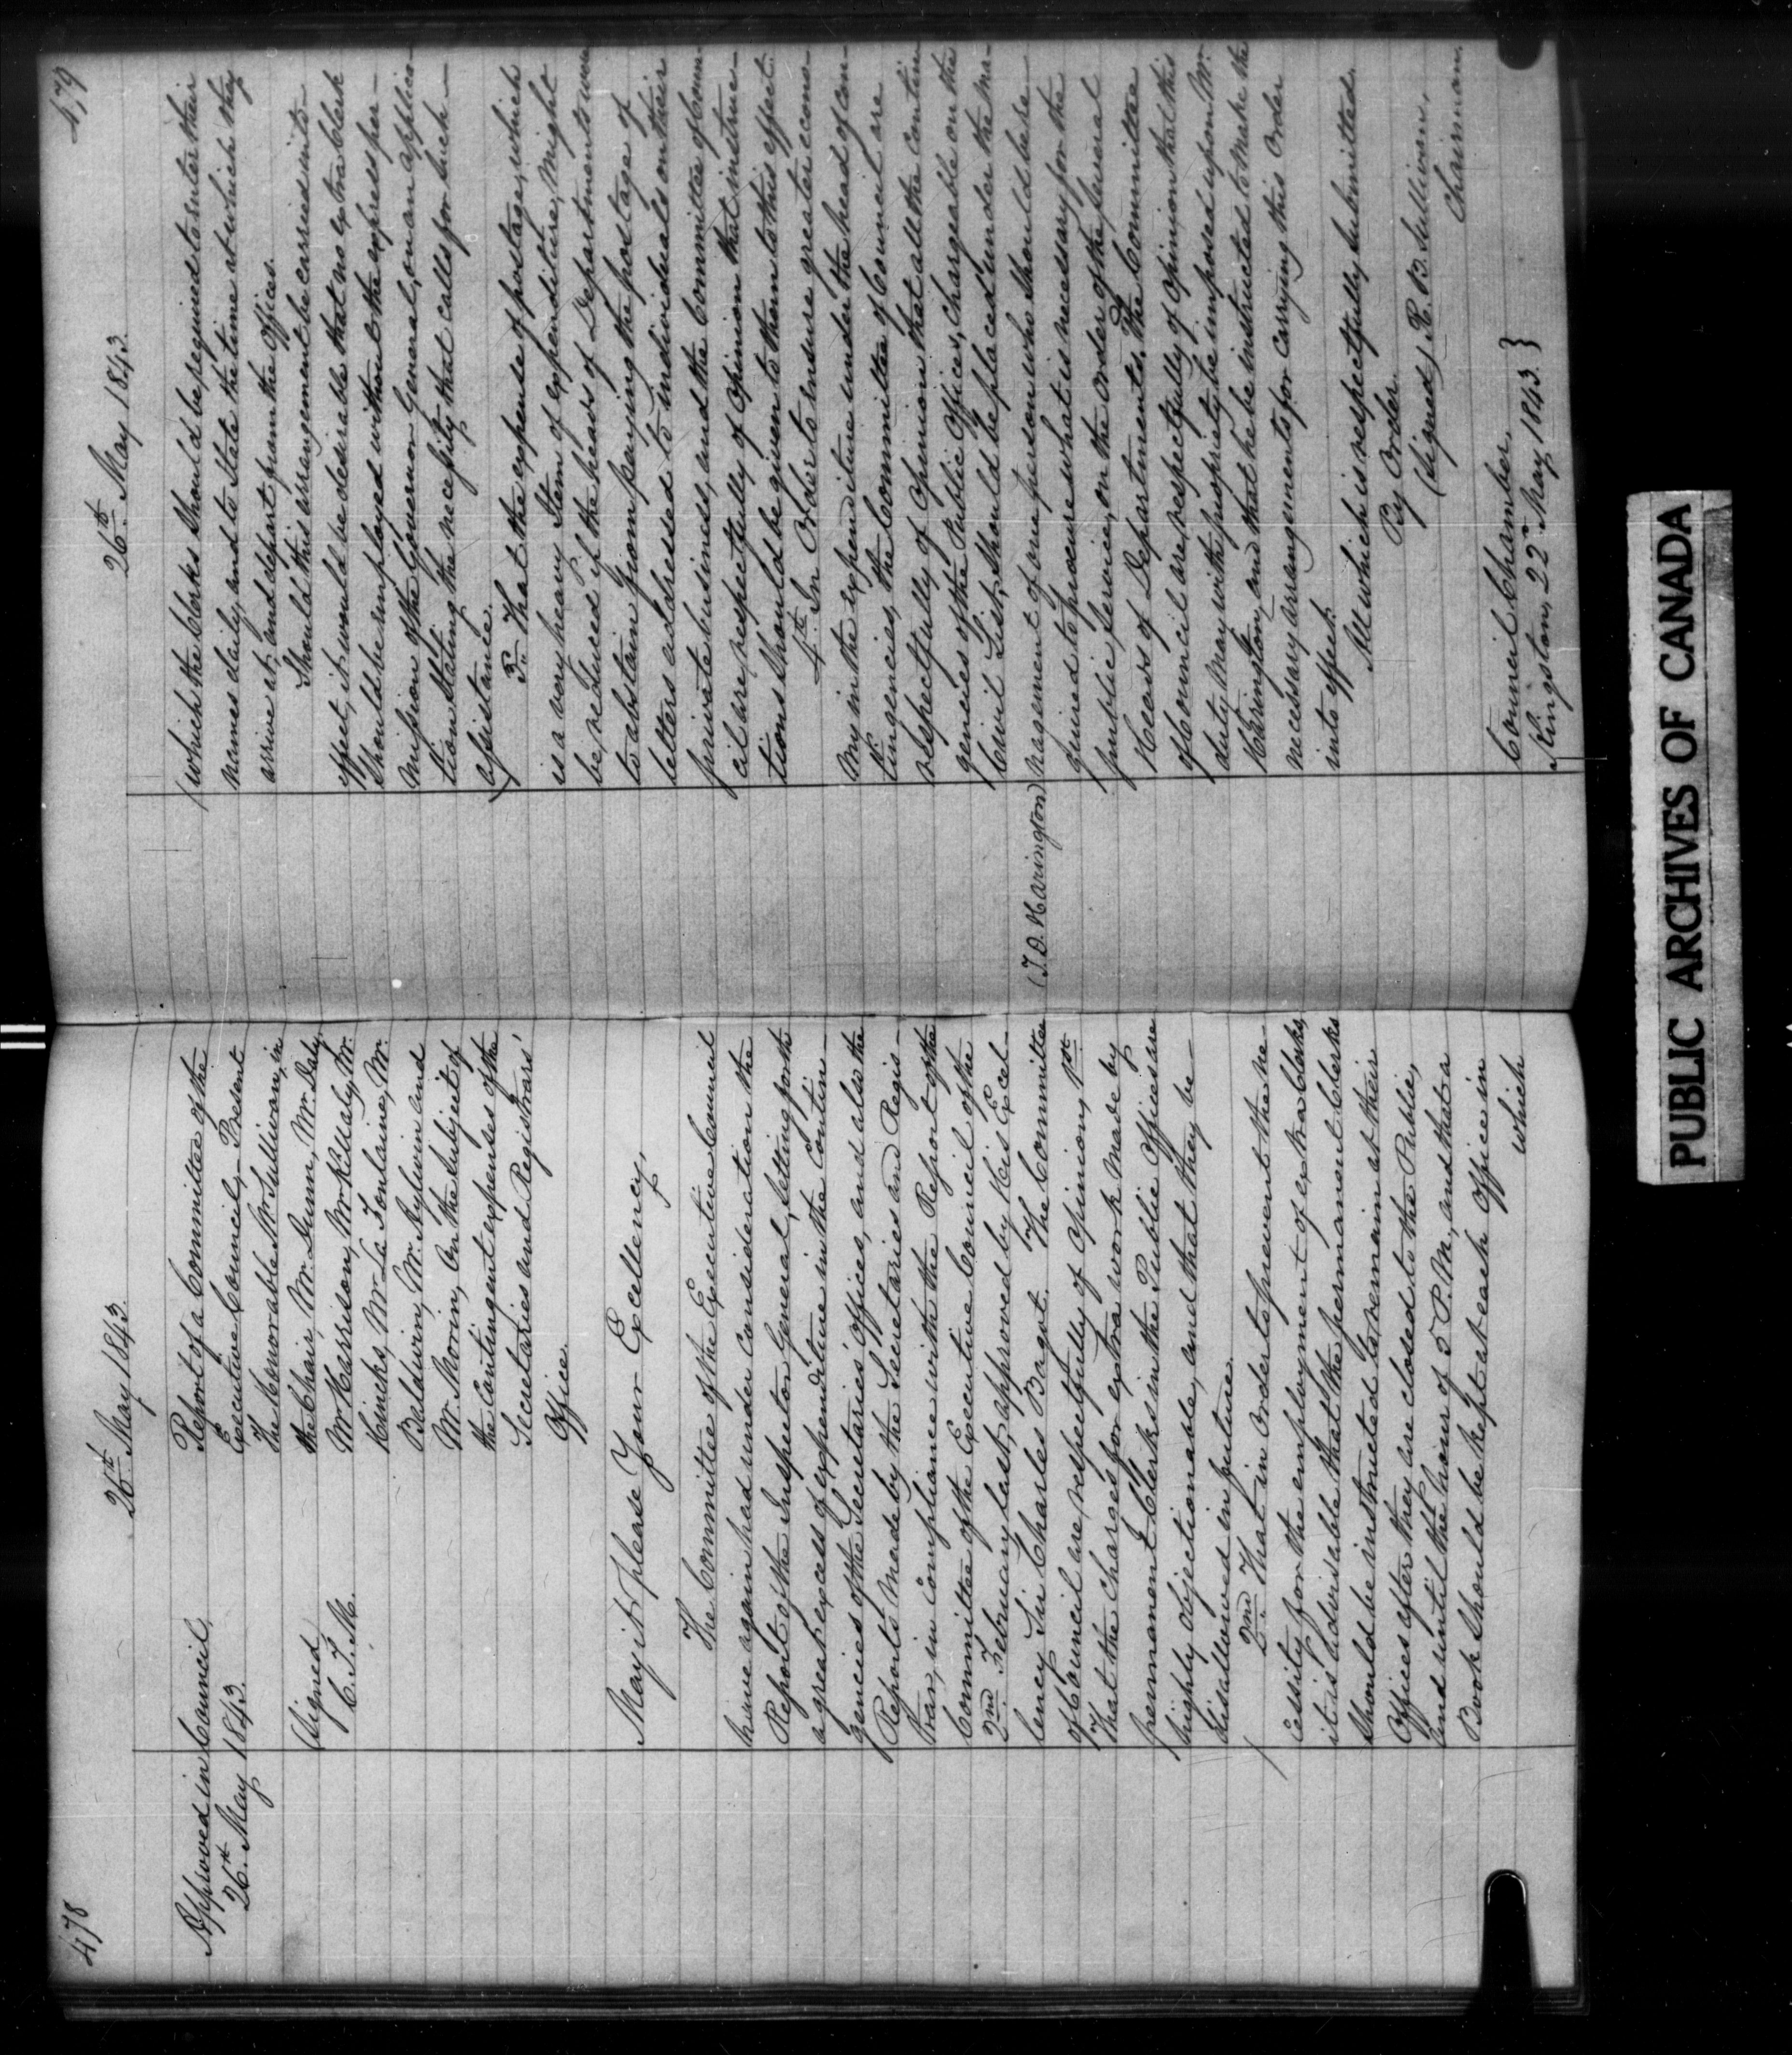 478
26th May 1843.
Approved in Council,
26th May 1843.
(Signed)
C. T. M.
Report of a Committee of the
Executive Council, Present
The Honorable Mr Sullivan, in
the Chair, Mr. Dunn, Mr. Daly,
Mr Harrison, Mr Killaly, Mr.
Hincks, Mr La Fontaine, Mr.
Baldwin, Mr. Aylwin and
Mr. Morin, On the subject of
the Contingent expenses of the
Secretaries and Registrars'
Office.
May it please Your Excellency,
The Committee of the Executive Council
have again had under Consideration the
Report of the Inspector General, setting forth
a great excess of expenditure in the Contin-
gencies of the Secretaries' Offices, and also the
Reports made by the Secretaries and Regis-
trar, in Compliance with the Report of the
Committee of the Executive Council of the
2nd February last, approved by His Excel-
lency Sir Charles Bagot. The Committee
of Council are, respectfully of Opinion, 1st.
That the Charges for extra work made by
permanent Clerks in the Public Offices are
highly objectionable, and that they be
disallowed in future.
2nd That in Order to prevent the ne-
cessity for the employment of extra Clerks,
it is advisable that the permanent Clerks
Should be instructed to remain at their
Offices after they are closed to the Public,
and until the hour of 5 P.M, and that a
Book should be kept at each Office in
which
479
26th May 1843.
which the Clerks Should be required to enter their
names daily, and to State the time at which they
arrive at, and depart from the Offices.
Should this arrangement be carried into
effect, it would be desirable that no extra Clerk
Should be employed without the express per-
mission of the Governor General, on an applica-
tion Stating the necessity that calls for such
assistance.
3rd That the expense of postage, which
is a very heavy Item of expenditure, might
be reduced if the heads of Departments were
to abstain from paying the postage of
letters addressed to individuals on their
private business, and the Committee of Coun
cil are, respectfully of Opinion that instruc-
tions Should be given to them to this effect.
4th In Order to ensure greater econo-
my in the expenditure under the head of Con-
tingencies, the Committee of Council are
respectfully of Opinion that all the contin
gencies of the Public Offices, Chargeable on the
Civil List, Should be placed under the Ma-
(T. D. Harington)
nagement of one person who Should be re-
quired to procure what is necessary for the
public Service, on the Order of the Several
Heads of Departments. The Committee
of Council are, respectfully of Opinion that this
duty May with propriety be imposed upon Mr.
Harington, and that he be instructed to make the
necessary arrangements for Carrying this Order
into effect.
All which is respectfully submitted.
By Order.
(Signed) R. B. Sullivan,
Chairman.
Council Chamber
Kingston, 22nd May, 1843. }
PUBLIC ARCHIVES OF CANADA